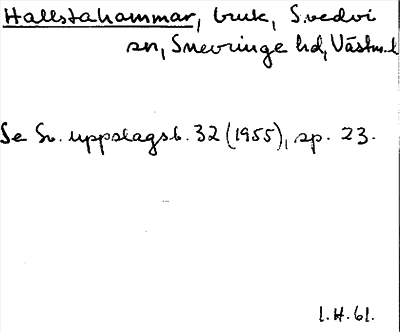 Hallstahammar, bruk, Svedvi
sn, Snevringe hd, Västm. l
Se Sv. uppslagsb. 32 (1955), sp. 23.
I.H.61.